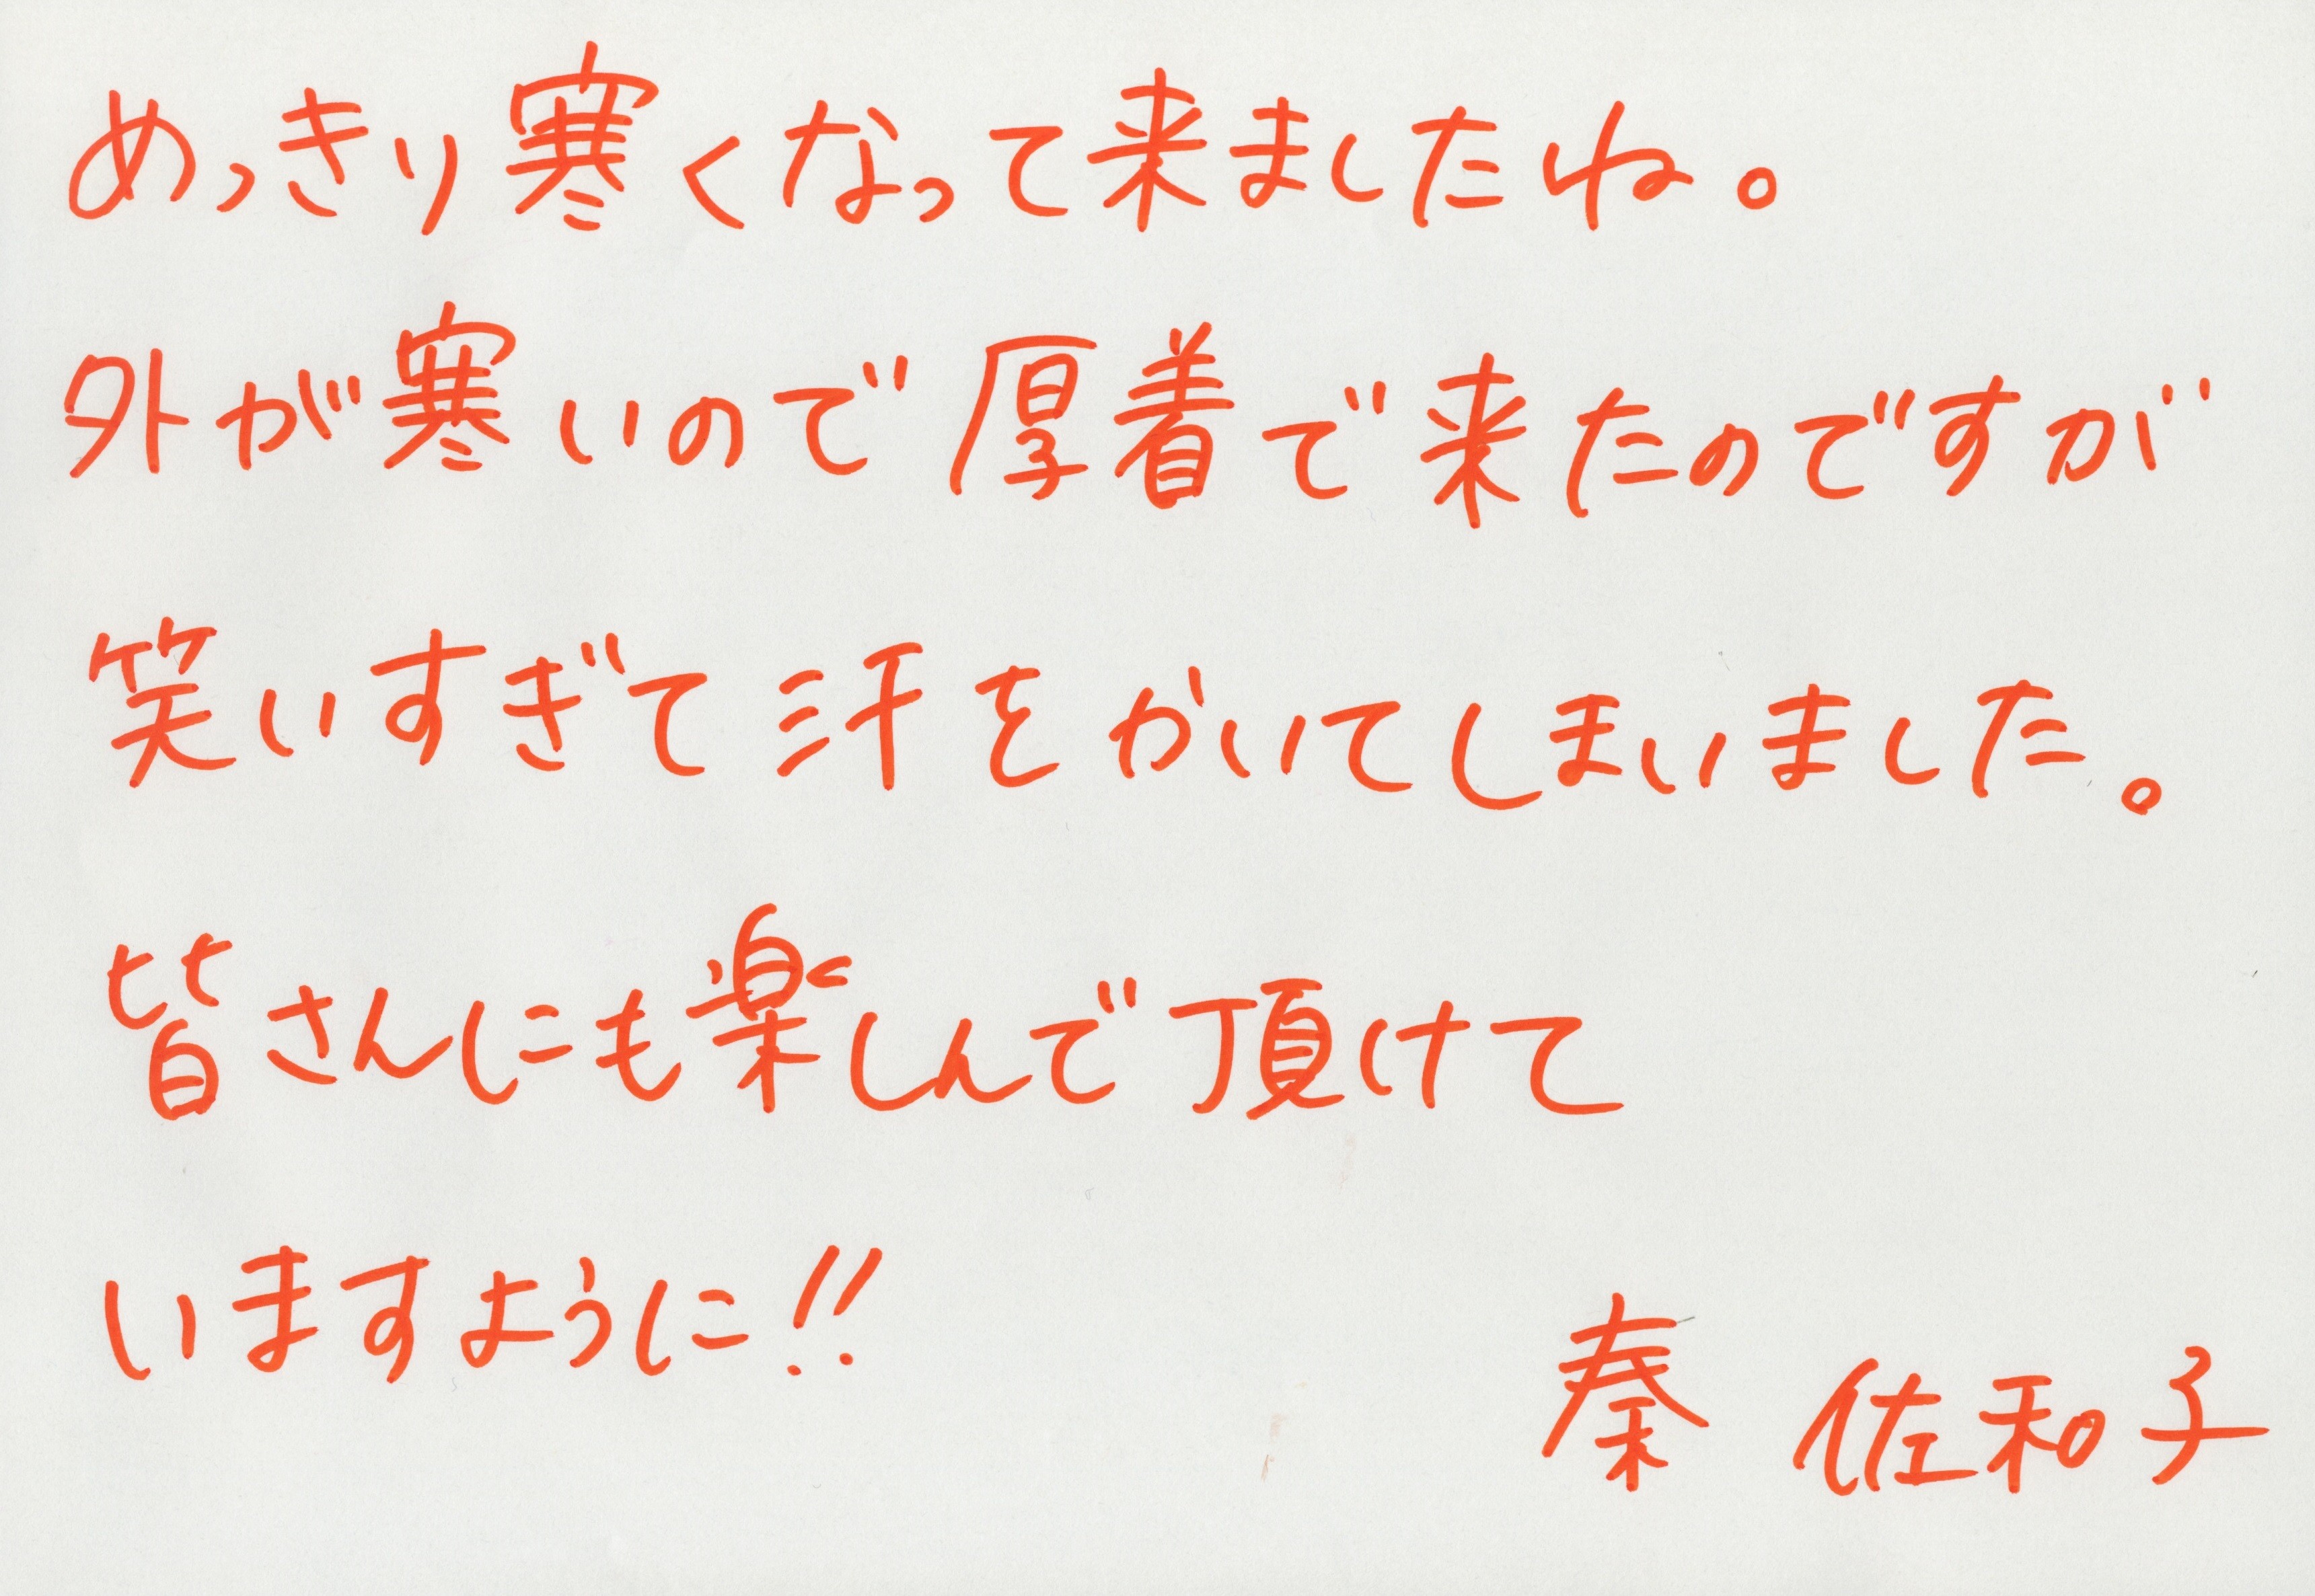 めっきり寒くなって来ましたね。
外が寒いので厚着で来たのですが
笑いすぎて汗をかいてしまいました。
皆さんにも楽しんで頂けて
いますように!!
秦 佐和子